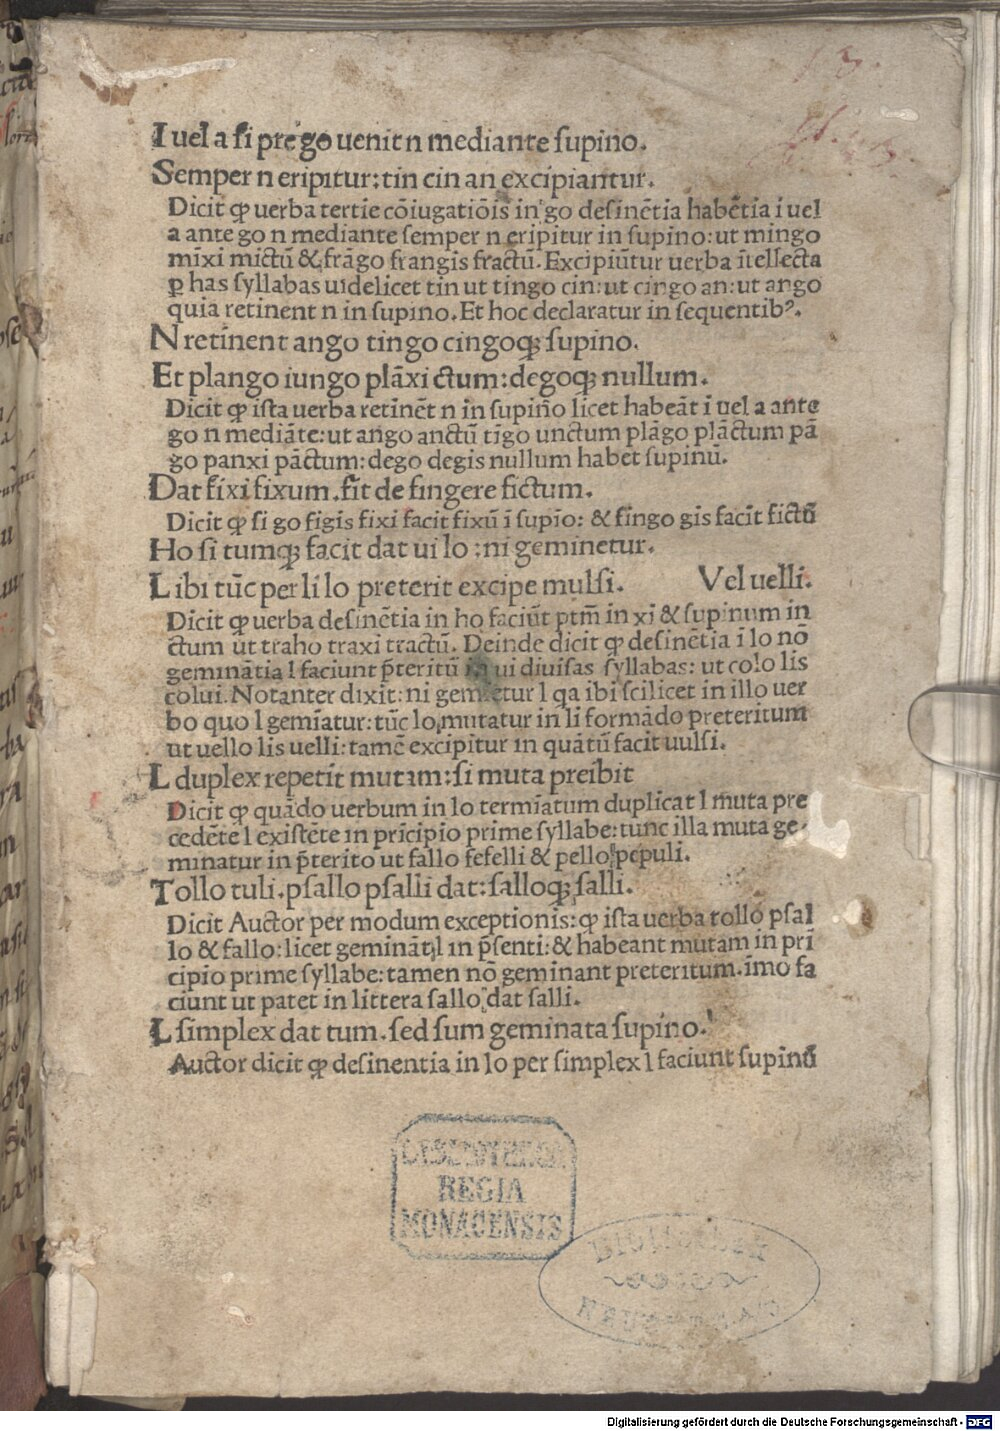 13.
I uel a si pre go uenit n mediante supino.
Semper n eripitur: tin cin an excipiantur.
Dicit ꝙ uerba tertie cōiugatiōis in go desinētia habētia i uel
a ante go n mediante semper n eripitur in supino: ut mingo
mīxi mictū & frāgo frangis fractū. Excipiūtur uerba ītellecta
ꝑ has syllabas uidelicet tin ut tingo cin: ut cingo an: ut ango
quia retinent n in supino. Et hoc declaratur in sequentibꝰ.
N retinent ango tingo cingoqꝫ supino.
Et plango iungo plāxi ctum: degoqꝫ nullum.
Dicit ꝙ ista uerba retinēt n in supino licet habeāt i uel a ante
go n mediāte: ut ango anctū tīgo unctum plāgo plāctum pā
go panxi pāctum: dego degis nullum habet supinū.
Dat fixi fixum. fit de fingere fictum.
Dicit ꝙ si go figis fixi facit fixū ī supīo: & fingo gis facit fictū
Ho si tumqꝫ facit dat ui lo: ni geminetur.
L ibi tūc per li lo preterit excipe mulsi. Vel uelli.
Dicit ꝙ uerba desinētia in ho faciūt ptm̄ in xi & supinum in
ctum ut traho traxi tractū. Deinde dicit ꝙ desinētia ī lo nō
geminātia l faciunt p̄teritū in ui diuisas syllabas: ut colo lis
colui. Notanter dixit: ni geminetur l qa ibi scilicet in illo uer
bo quo l gemīatur: tūc lo mutatur in li formādo preteritum
ut uello lis uelli: tamē excipitur in quātū facit uulsi.
L duplex repetit mutam: si muta preibit
Dicit ꝙ quādo uerbum in lo termīatum duplicat l muta pre
cedēte l existēte in prīcipio prime syllabe: tunc illa muta ge-
minatur in p̄terito ut fallo fefelli & pello pepuli.
Tollo tuli. psallo psalli dat: salloqꝫ salli.
Dicit Auctor per modum exceptionis: ꝙ ista uerba tollo psal
lo & fallo: licet gemināt l in p̄senti: & habeant mutam in prī
cipio prime syllabe: tamen nō geminant preteritum. īmo fa
ciunt ut patet in littera sallo dat salli.
L simplex dat tum. sed sum geminata supino.
Auctor dicit ꝙ desinentia in lo per simplex l faciunt supinū
REGIA
MONACENSIS
Digitalisierung gefördert durch die Deutsche Forschungsgemeinschaft - DFG